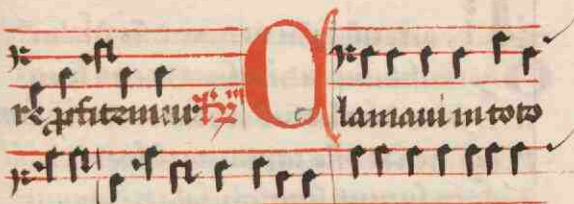 re ꝓfitemur Clamaui in toto